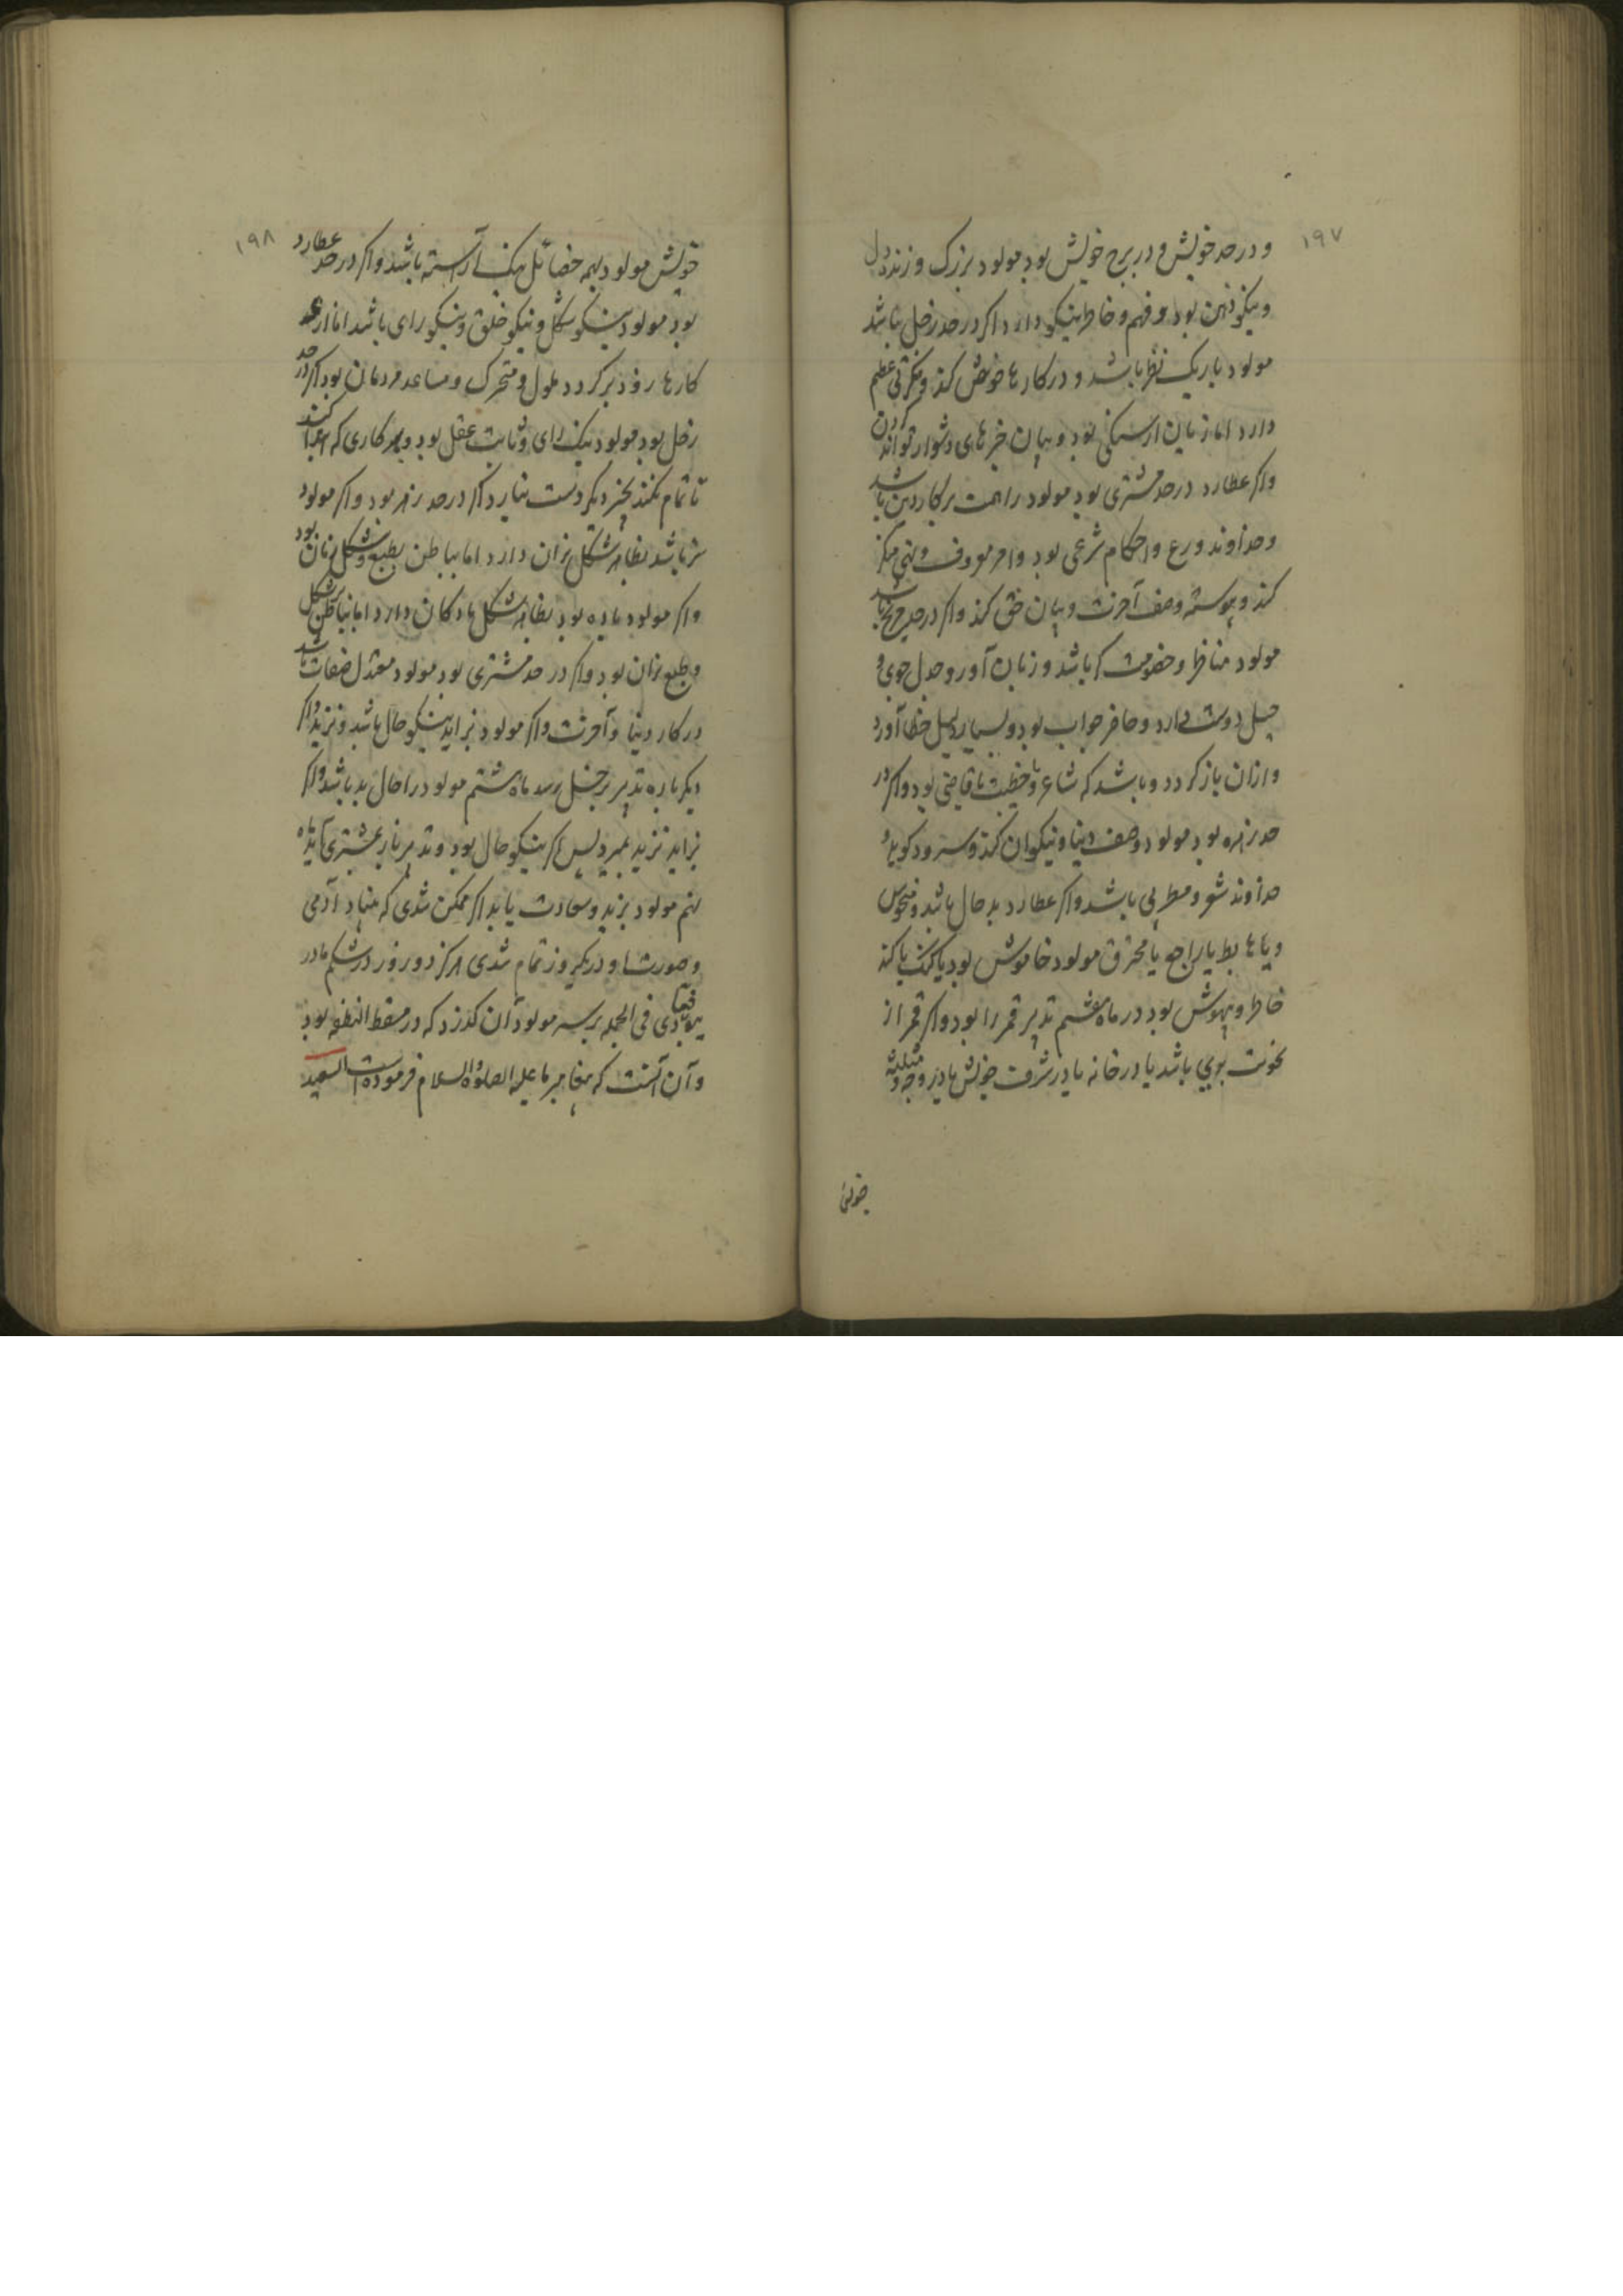 ۱۹۷
و در حد خویش و در برج خویش بود مولود بزرک و زنده دل
و نیکو ذهن بود و فهم و خاطر نیکو دارد اکر در حد زحل باشد
مولود باریک نظر باشد و در کارها خوض کند و فکرتی عظیم
دارد اما زبان بود و بیان خبرهای دشوار تواند کردن
واکر عطارد در حد مشتری بود مولود را همت بر کار دین باشد
و خداوند ورع و احکام شرعی بود و امر معروف و نهی منکر
کند و پیوسته وصف آخرت و بیان حق کند واکر در حد مریخ باشد
مولود مناظر و خصومت کر باشد و زبان آور و جدل جوی و
حیل دوست دارد و حاضر جواب بود و بسیار خطا آورد
و ازان باز کردد و باشد که شاعر یا خطیب یا قاضی بود واکر در
حد زهره بود مولود وصف دنیا و نیکوان کند و سرود کوید و
خداوند شعر و مطربی باشد واکر عطارد بد حال باشد و منحوس
و یا هابط یا راجع یا محترق مولود خاموش بود یا کنک یا کند
خاطر و بیهوش بود در ماه هفتم تدبیر قمر را بود واکر قمر از
نحوست بری باشد یا در خانه یا در شرف خویش یا در وجه و مثلثه
خویش
۱۹۸
خویش مولود بهمه خصائل نیک آراسته باشد واکر در حد عطارد
بود مولود نیکو شکل و نیکو خلق و نیکو رای باشد اما از
کارها زود برکردد ملول و متحرک و مساعد مردمان بود اکر در حد
زحل بود مولود نیک رای و ثابت عقل بود و بهر کاری که ابتدا کند
تا تمام نکند بچیز دیکر دست نیارد اکر در حد زهره بود واکر مولود
نر باشد بظاهر شکل نران دارد اما بباطن بطبع و شکل زنان بود
واکر مولود ماده بود بظاهر شکل مادکان دارد اما بباطن بشکل
و طبع نران بود واکر در حد مشتری بود مولود معتدل صفات باشد
در کار دنیا و آخرت واکر مولود بزاید نیکو حال باشد و بزید واکر
دیکر باره تدبیر بزحل رسد ماه هشتم مولود را حال بد باشد واکر
بزاید نزید بمیرد پس اکر نیکو حال بود و تدبیر باز بمشتری آید ماه
نهم مولود بزید و سعادت یابد اکر ممکن شدی که بنیاد آدمی
و صورت او در یکروز تمام شدی هرکز دو روز در شکم مادر
فی الجمله بر سر مولود آن کذرد که در مسقط النطفه بود
و آن آنست که پیغامبر ما علیه الصلوة والسلام فرموده است السعید